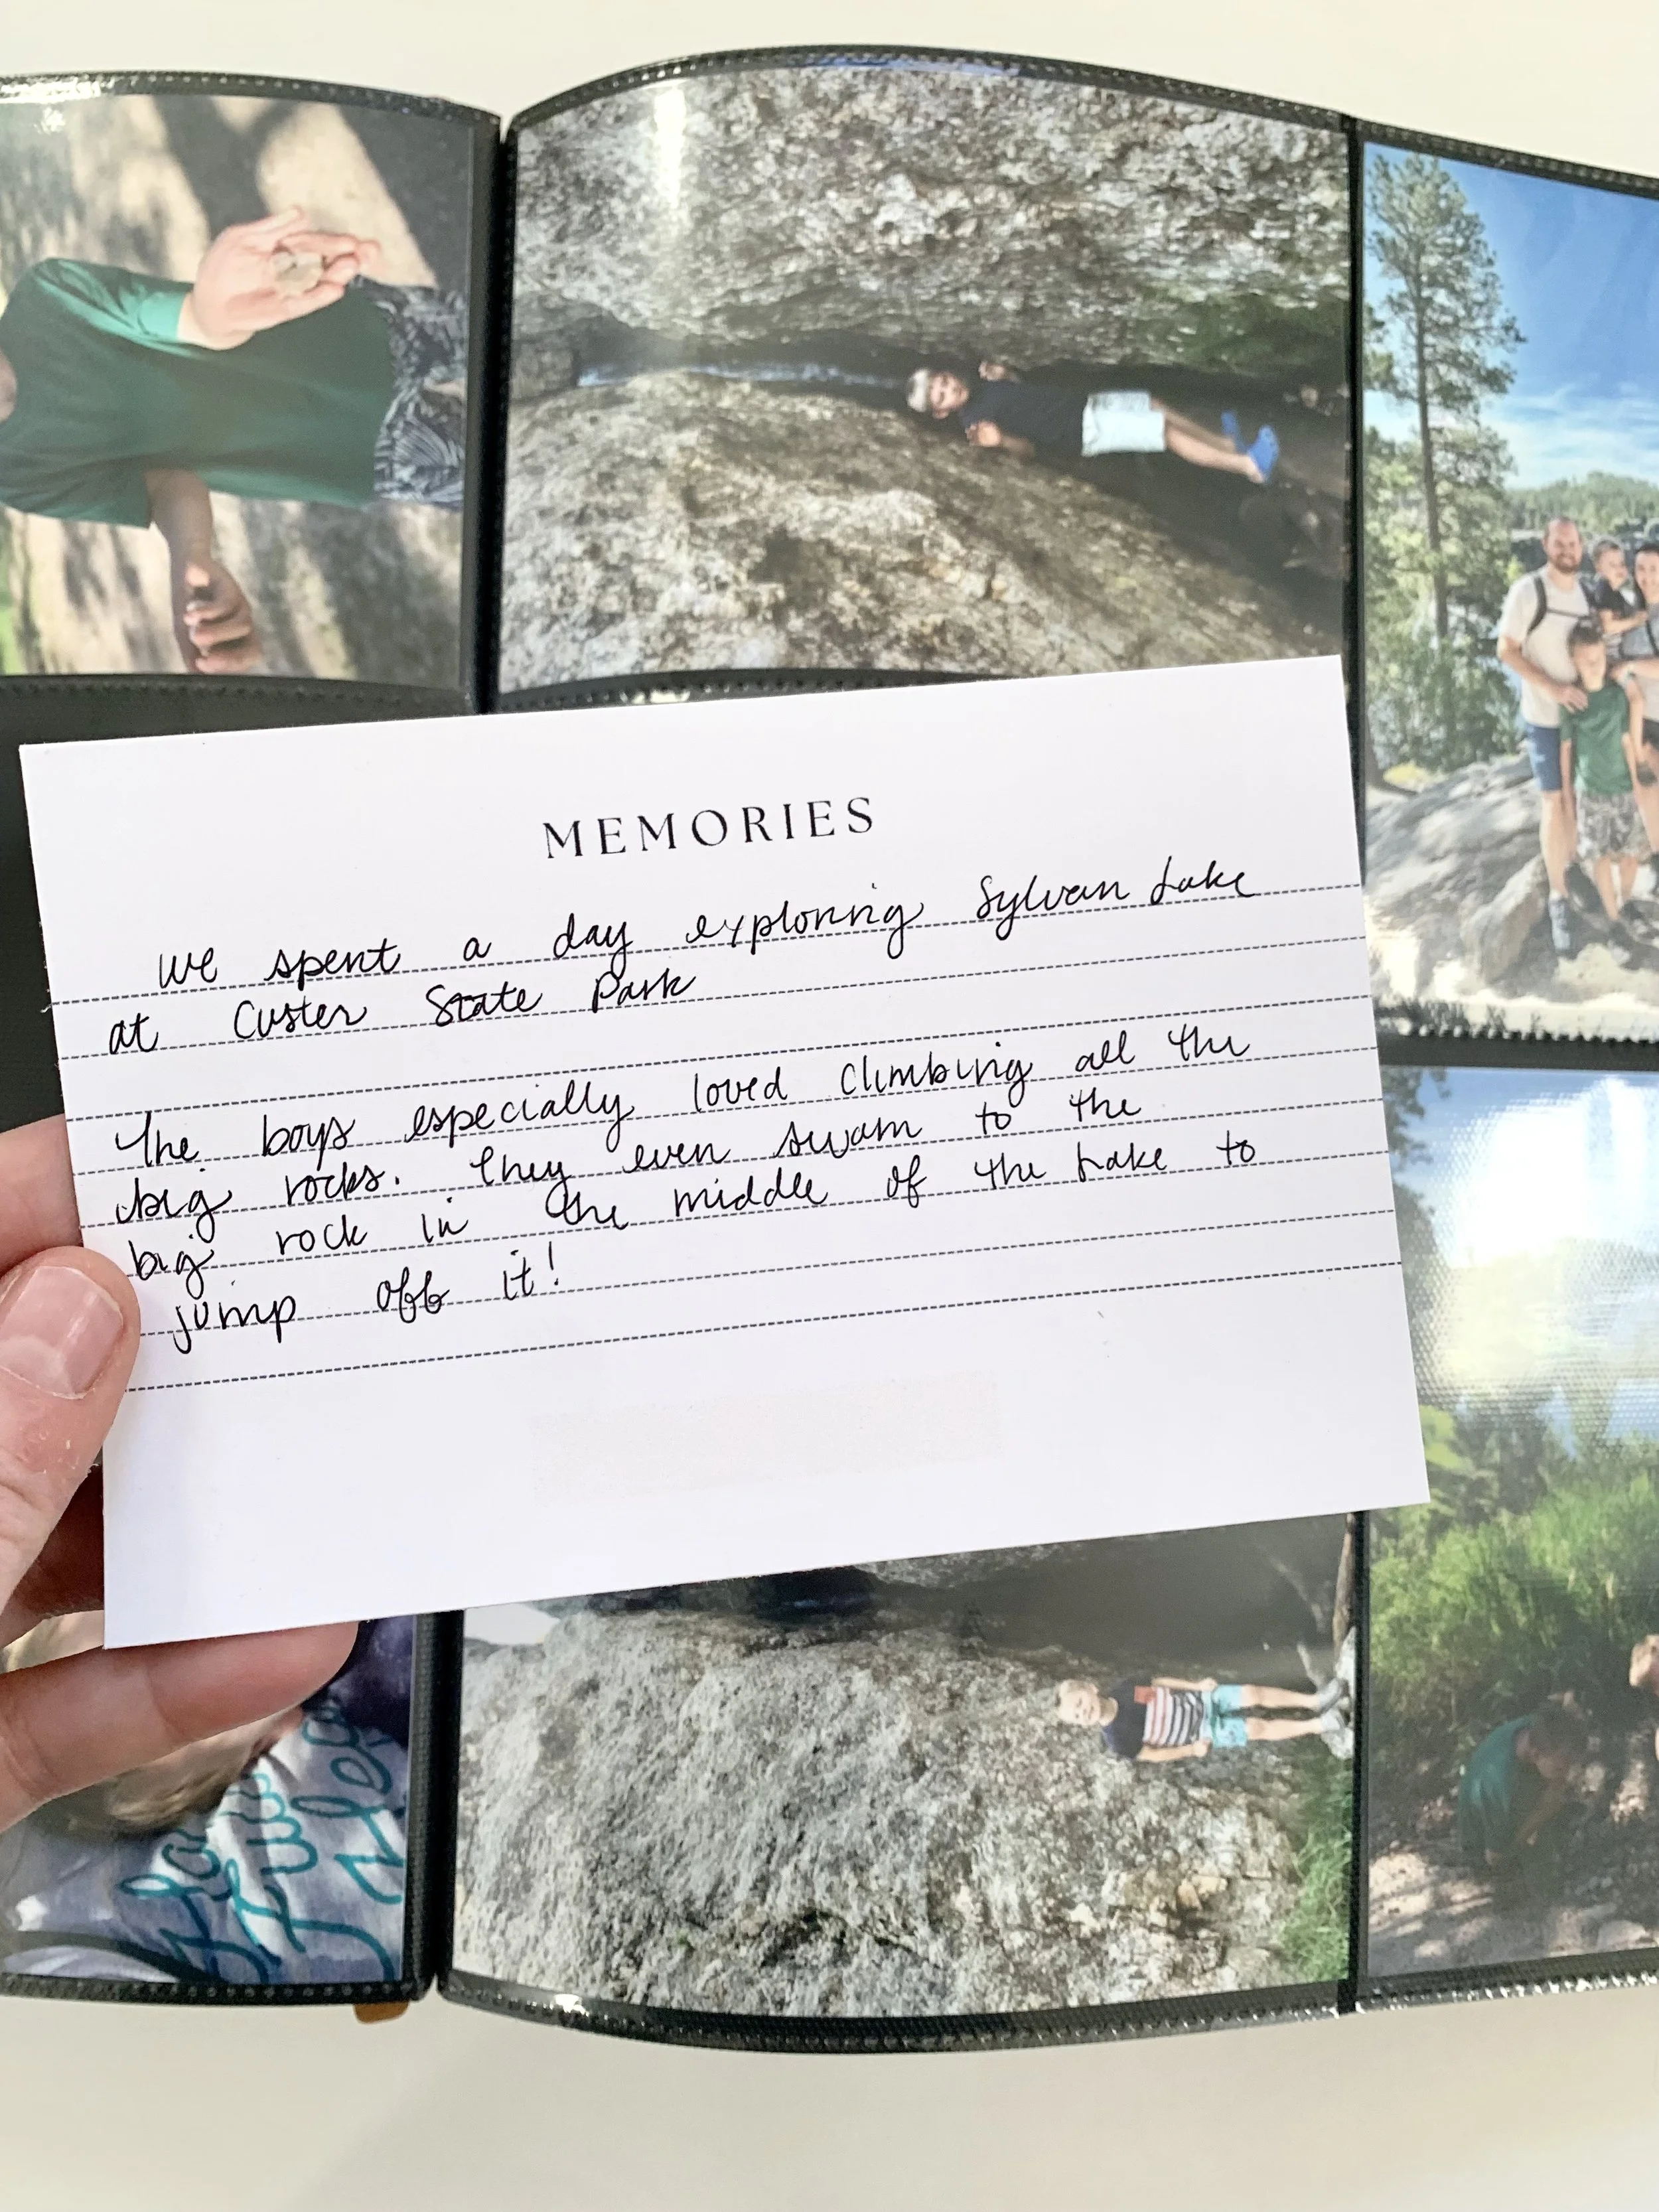 MEMORIES
we spent a day exploring Sylvan Lake
at Custer State Park
The boys especially loved climbing all the
big rocks. They even swam to the
big rock in the middle of the Lake to
jump off it!